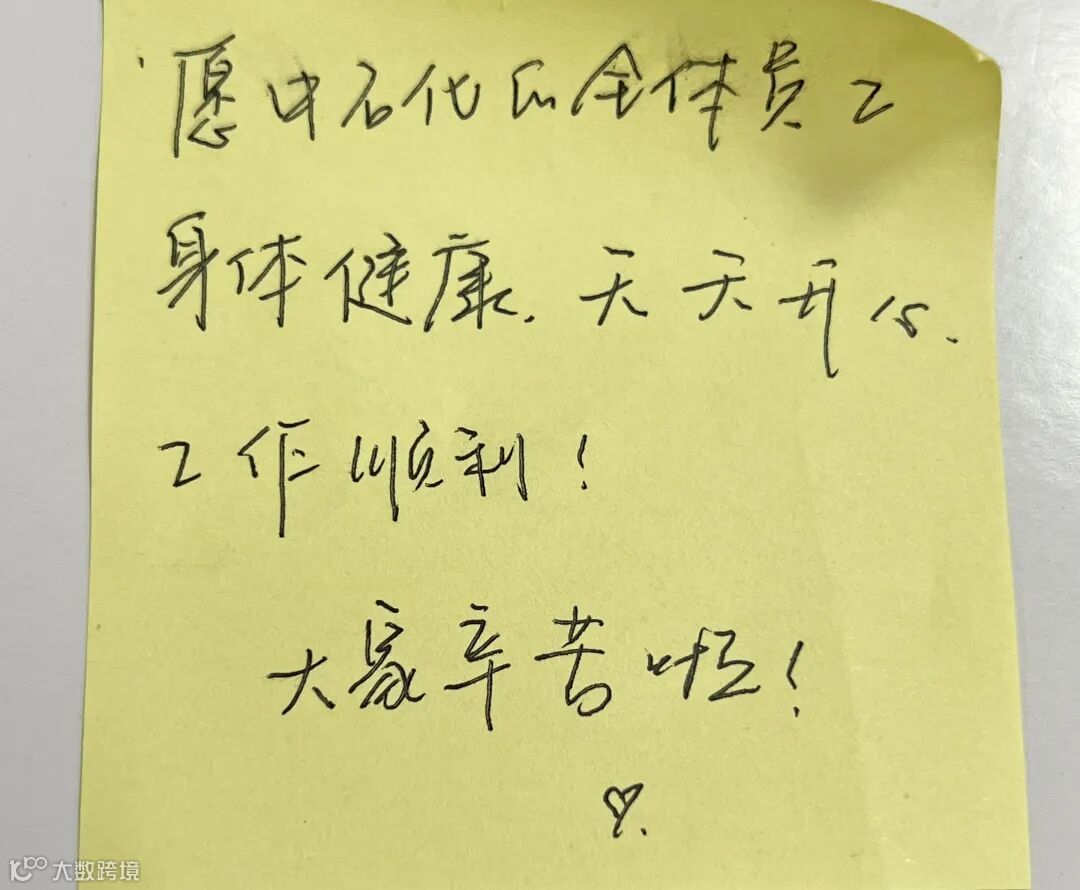 愿中石化的全体员工
身体健康、天天开心、
工作顺利！
大家辛苦啦！
大数跨境